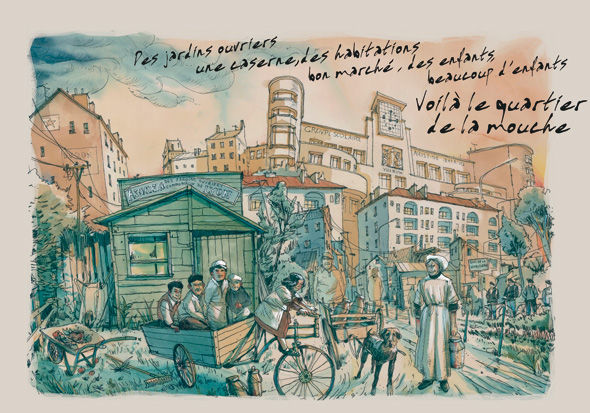 Des jardins ouvriers
une caserne, des habitations
bon marché, des enfants,
beaucoup d'enfants
Voilà le quartier
de la mouche
GROUPE SCOLAIRE